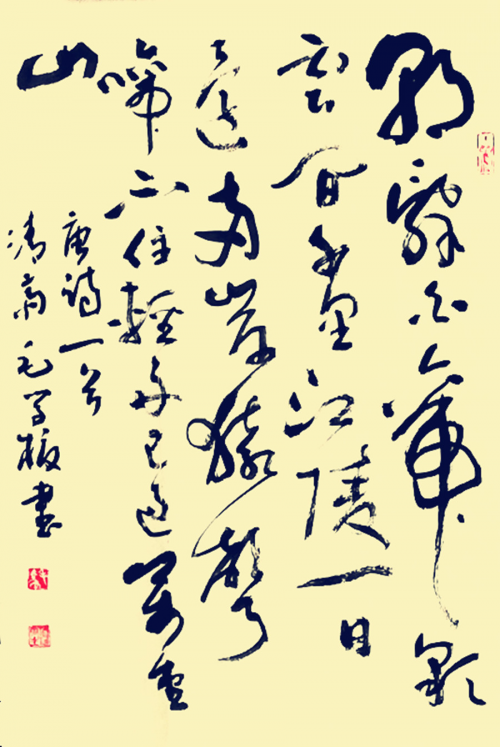 朝辭白帝彩
雲間千里江陵一日
還兩岸猿聲
啼不住輕舟已過萬重
山
唐詩一首
毛学板書